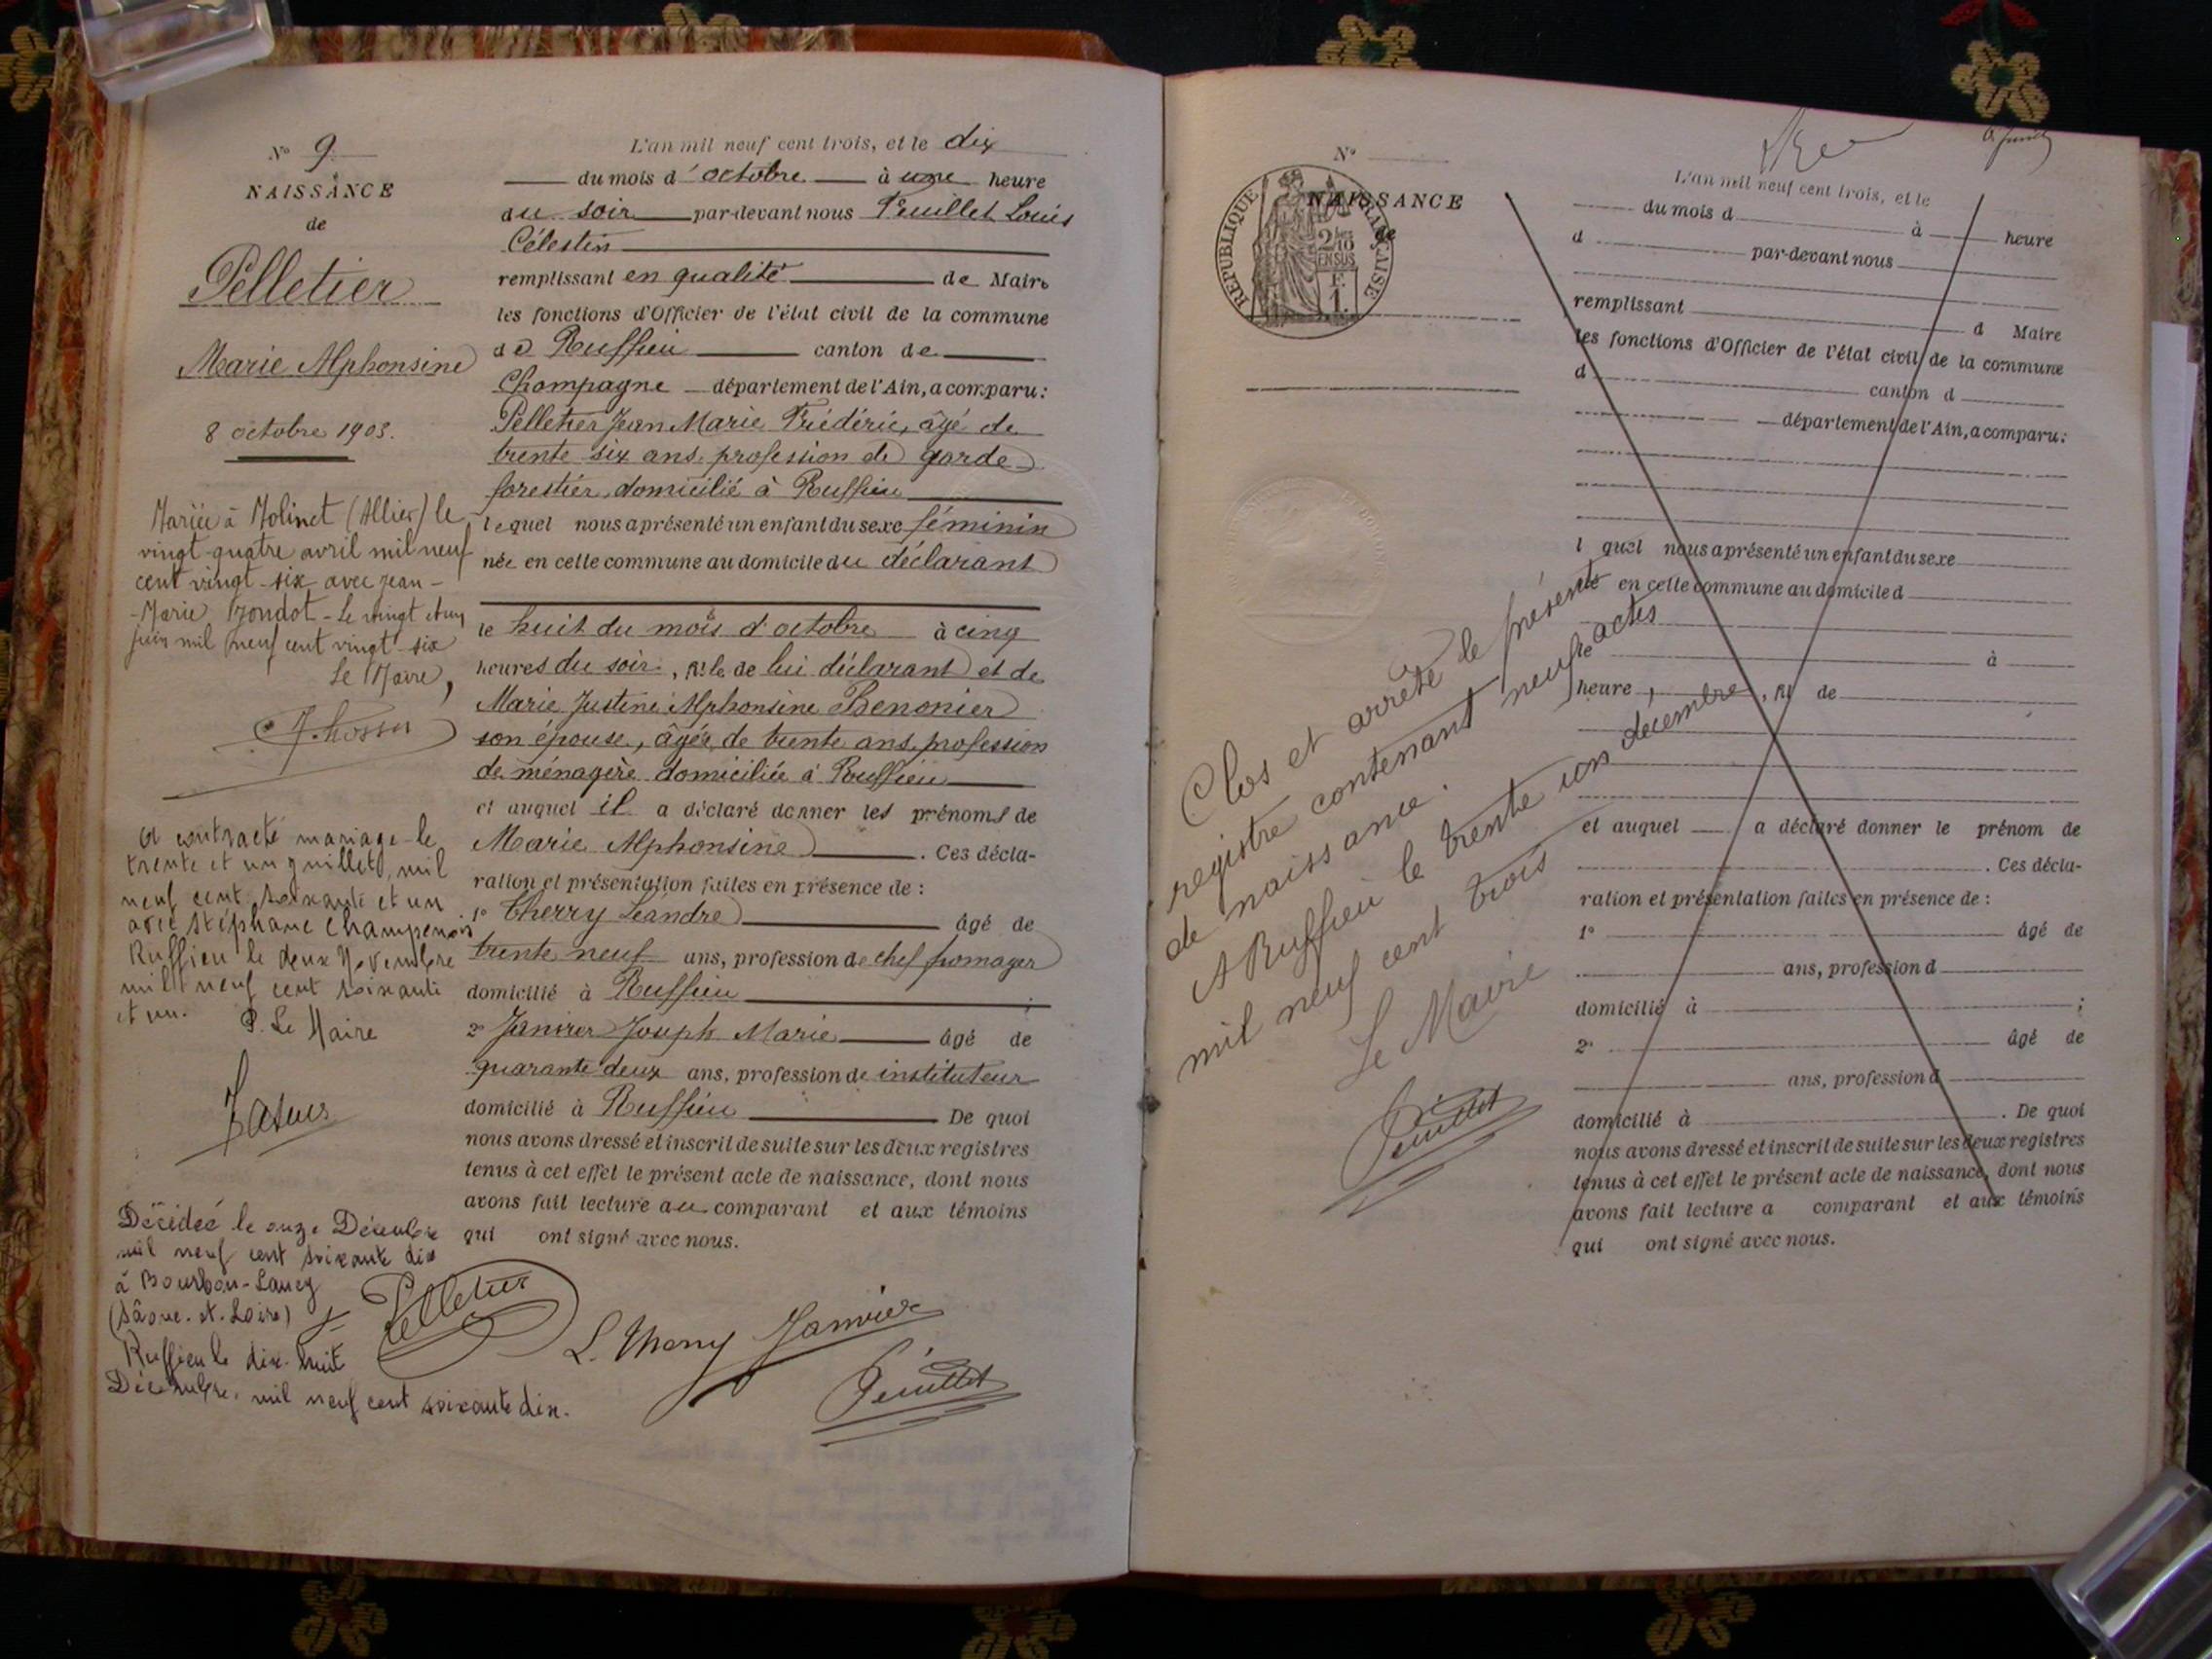 N° 9
NAISSANCE
de
Pelletier
Marie Alphonsine
8 octobre 1903.
Mariée à Molinet (Allier) le
vingt-quatre avril mil neuf
cent vingt-six avec Jean-
-Marie Trondot - Le vingt et un
juin mil neuf cent vingt-six
Le Maire,
A contracté mariage le
trente et un juillet, mil
neuf cent soixante et un
avec Stéphane Champenois
Ruffieu le deux Novembre
mil neuf cent soixante
et un.
P. Le Maire
Décidée le onze Décembre
mil neuf cent soixante dix
à Bourbon-Lancy
(Sâone-et-Loire)
Ruffieu le dix-huit
Décembre, mil neuf cent soixante dix.
L'an mil neuf cent trois, et le dix
du mois d'octobre à une heure
du soir par-devant nous Feuillet Louis
Célestin
remplissant en qualité de Maire
les fonctions d'Officier de l'état civil de la commune
de Ruffieu canton de
Champagne département de l'Ain, a comparu :
Pelletier Jean Marie Frédéric, âgé de
trente six ans, profession de garde
forestier, domicilié à Ruffieu
lequel nous a présenté un enfant du sexe féminin
née en cette commune au domicile du déclarant
le huit du mois d'octobre à cinq
heures du soir, né de lui déclarant et de
Marie Justine Alphonsine Benonier
son épouse, âgée de trente ans, profession
de ménagère domiciliée à Ruffieu
et auquel il a déclaré donner les prénoms de
Marie Alphonsine. Ces décla-
ration et présentation faites en présence de :
1° Therry Léandre âgé de
trente neuf ans, profession de chef fromager
domicilié à Ruffieu ;
2° Janvier Joseph Marie âgé de
quarante deux ans, profession de instituteur
domicilié à Ruffieu De quoi
nous avons dressé et inscrit de suite sur les deux registres
tenus à cet effet le présent acte de naissance, dont nous
avons fait lecture au comparant et aux témoins
qui ont signé avec nous.
Pelletier
L. Therry Janvier
Feuillet
N°
NAISSANCE
de
RÉPUBLIQUE FRANÇAISE
2/10
EN SUS
F.
1.
Clos et arrêté le présent
registre contenant neuf actes
de naissance.
A Ruffieu le trente un décembre
mil neuf cent trois
Le Maire
Feuillet
L'an mil neuf cent trois, et le
du mois d à heure
d par-devant nous
remplissant d Maire
les fonctions d'Officier de l'état civil de la commune
d canton d
département de l'Ain, a comparu :
l quel nous a présenté un enfant du sexe
né en cette commune au domicile d
le à
heure , né de
et auquel a déclaré donner le prénom de
. Ces décla-
ration et présentation faites en présence de :
1° âgé de
ans, profession d
domicilié à ;
2° âgé de
ans, profession d
domicilié à . De quoi
nous avons dressé et inscrit de suite sur les deux registres
tenus à cet effet le présent acte de naissance, dont nous
avons fait lecture a comparant et aux témoins
qui ont signé avec nous.